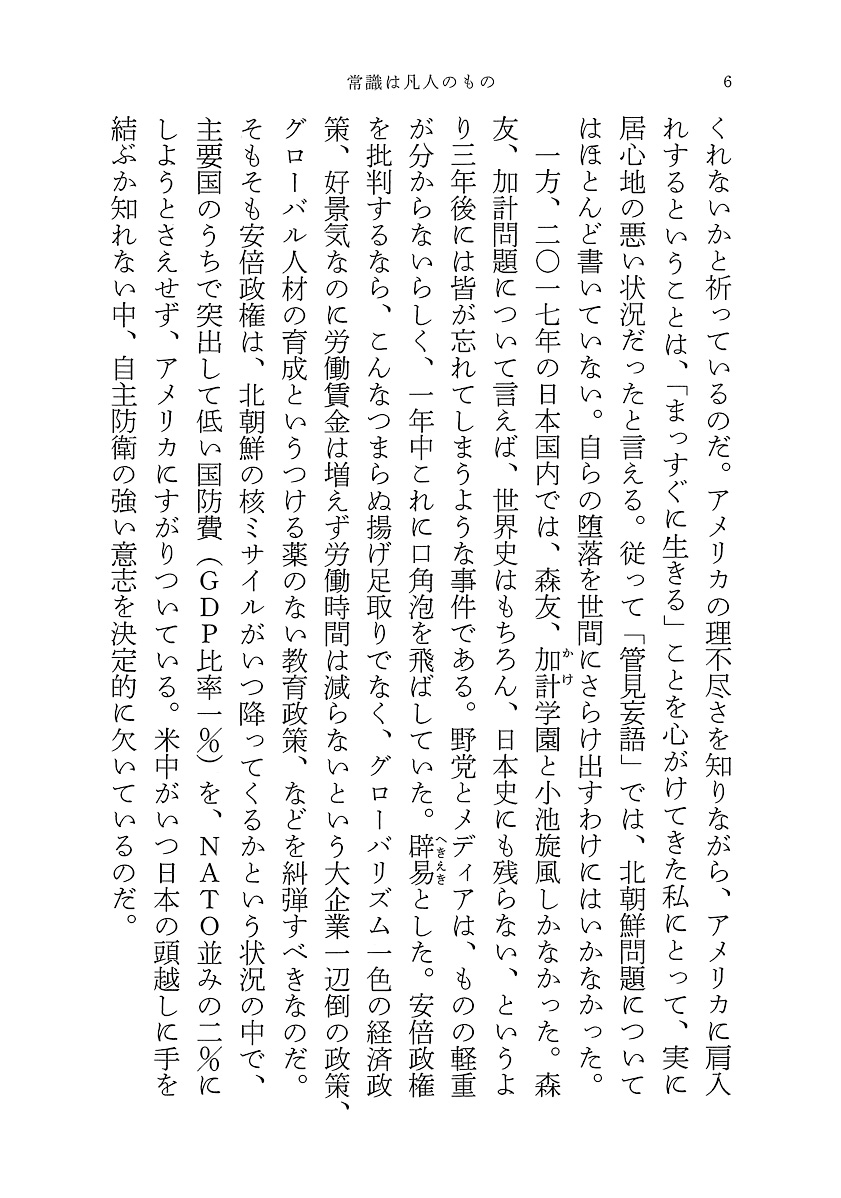 常識は凡人のもの
6
くれないかと祈っているのだ。アメリカの理不尽さを知りながら、アメリカに肩入
れするということは、「まっすぐに生きる」ことを心がけてきた私にとって、実に
居心地の悪い状況だったと言える。従って「管見妄語」では、北朝鮮問題について
はほとんど書いていない。自らの堕落を世間にさらけ出すわけにはいかなかった。
一方、二〇一七年の日本国内では、森友、加計学園と小池旋風しかなかった。森
かけ
友、加計問題について言えば、世界史はもちろん、日本史にも残らない、というよ
り三年後には皆が忘れてしまうような事件である。野党とメディアは、ものの軽重
が分からないらしく、一年中これに口角泡を飛ばしていた。辟易とした。安倍政権
へきえき
を批判するなら、こんなつまらぬ揚げ足取りでなく、グローバリズム一色の経済政
策、好景気なのに労働賃金は増えず労働時間は減らないという大企業一辺倒の政策、
グローバル人材の育成というつける薬のない教育政策、などを糾弾すべきなのだ。
そもそも安倍政権は、北朝鮮の核ミサイルがいつ降ってくるかという状況の中で、
主要国のうちで突出して低い国防費（GDP比率一％）を、NATO並みの二％に
しようとさえせず、アメリカにすがりついている。米中がいつ日本の頭越しに手を
結ぶか知れない中、自主防衛の強い意志を決定的に欠いているのだ。